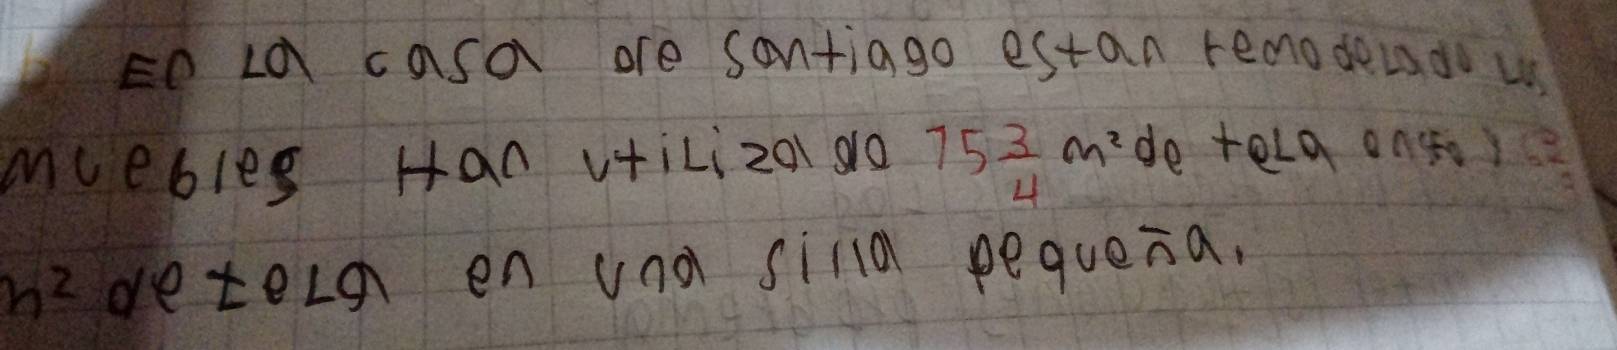 b. En La casa de santiago estan remodelado Los
muebles Han utilizado 15 3/4 m² de tela en
m² de tela en una silla pequeña.